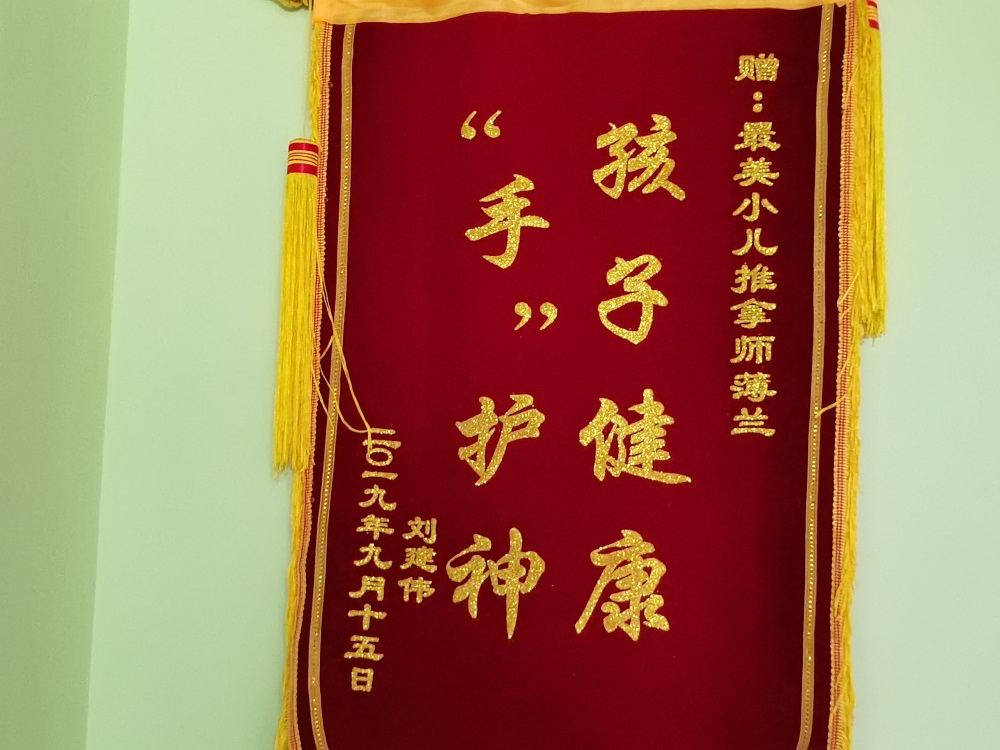 赠：最美小儿推拿师薄兰
孩子健康
“手”护神
刘建伟
二〇一九年九月十五日